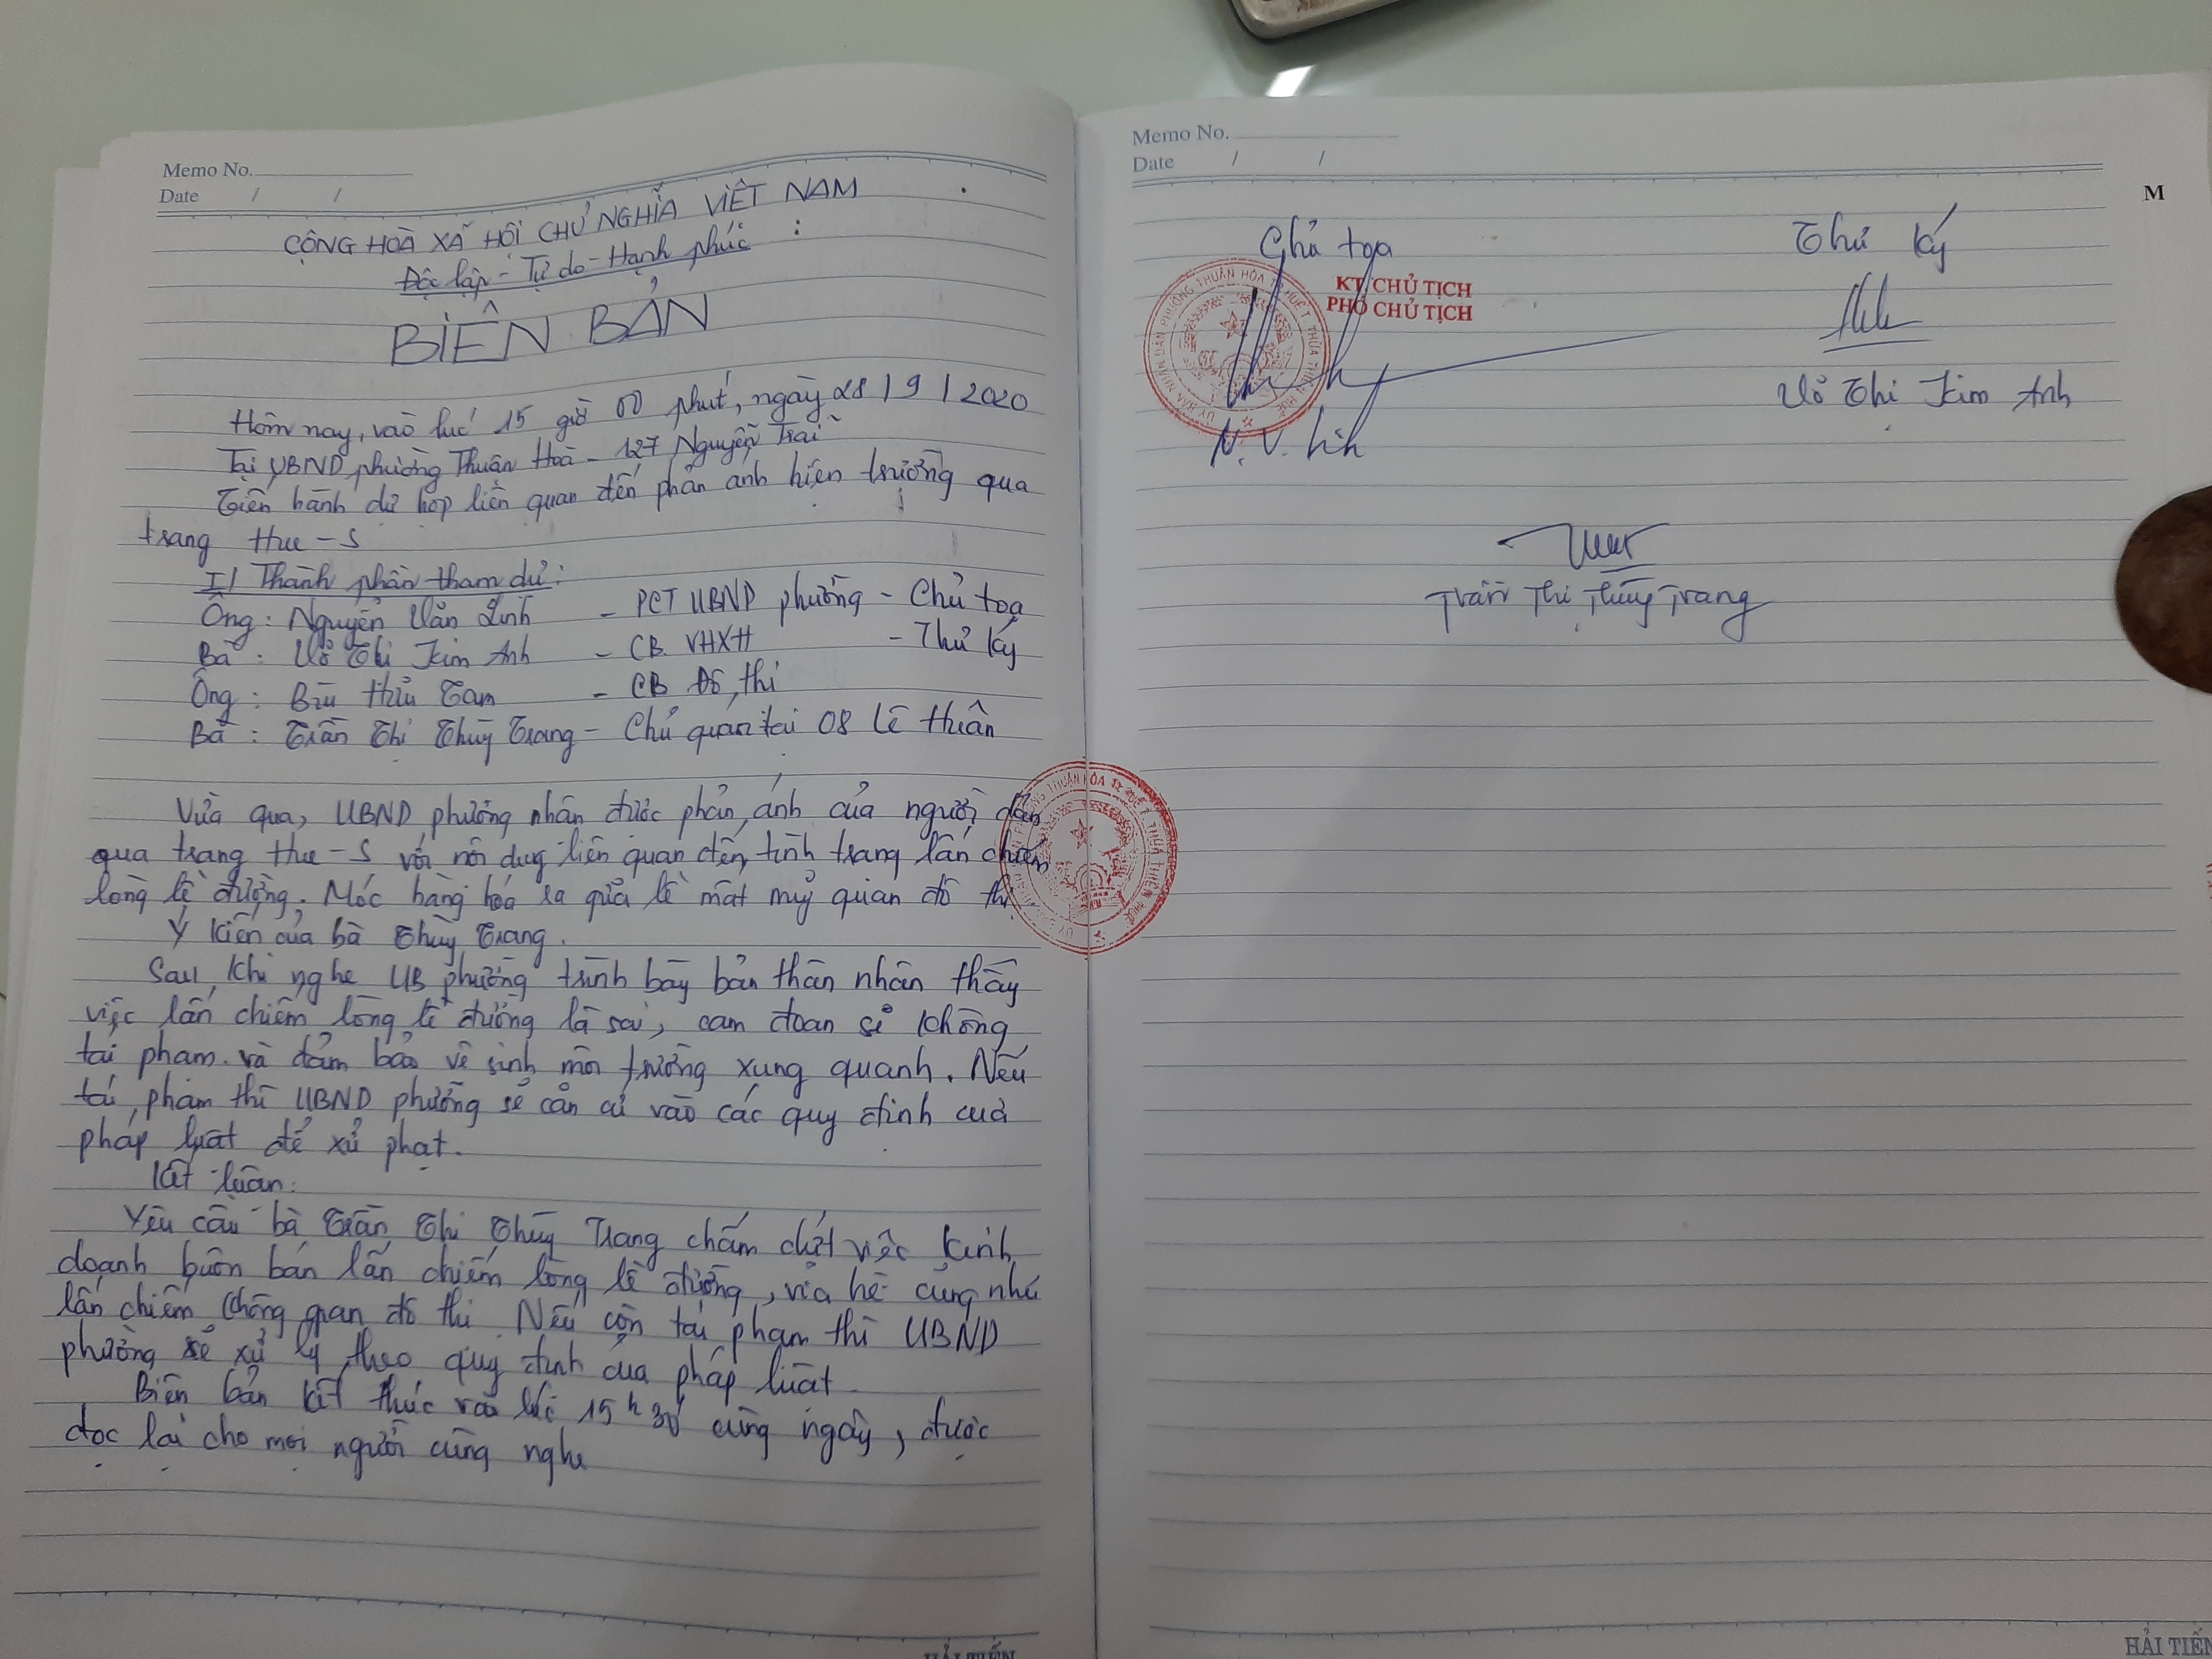 Memo No.
Date / /
CỘNG HOÀ XÃ HỘI CHỦ NGHĨA VIỆT NAM
Độc lập - Tự do - Hạnh phúc
BIÊN BẢN
Hôm nay, vào lúc 15 giờ 00 phút, ngày 28/9/2020
Tại UBND phường Thuận Hoà - 127 Nguyễn Trãi
Tiến hành dự họp liên quan đến phản ánh hiện trường qua
trang Hue-S
I/ Thành phần tham dự:
Ông: Nguyễn Văn Linh - PCT UBND phường - Chủ toạ
Bà: Võ Thị Kim Anh - CB. VHXH - Thư ký
Ông: Bửu Hữu Tam - CB Đô thị
Bà: Trần Thị Thùy Trang - Chủ quán tại 08 Lê Huân
Vừa qua, UBND phường nhận được phản ánh của người dân
qua trang Hue-S với nội dung liên quan đến tình trạng lấn chiếm
lòng lề đường. Móc hàng hóa ra giữa lề mất mỹ quan đô thị
Ý kiến của bà Thùy Trang.
Sau khi nghe UB phường trình bày bản thân nhận thấy
việc lấn chiếm lòng lề đường là sai, cam đoan sẽ không
tái phạm. và đảm bảo vệ sinh môi trường xung quanh. Nếu
tái phạm thì UBND phường sẽ căn cứ vào các quy định của
pháp luật để xử phạt.
Kết luận:
Yêu cầu bà Trần Thị Thùy Trang chấm dứt việc kinh
doanh buôn bán lấn chiếm lòng lề đường, vỉa hè cũng như
lấn chiếm không gian đô thị. Nếu còn tái phạm thì UBND
phường sẽ xử lý theo quy định của pháp luật.
Biên bản kết thúc vào lúc 15h30' cùng ngày, được
đọc lại cho mọi người cùng nghe
HẢI TIẾN
Memo No.
Date / /
M
Chủ tọa
Thư ký
KT CHỦ TỊCH
PHÓ CHỦ TỊCH
N.V. Linh
Võ Thị Kim Anh
Trần Thị Thùy Trang
HẢI TIẾN